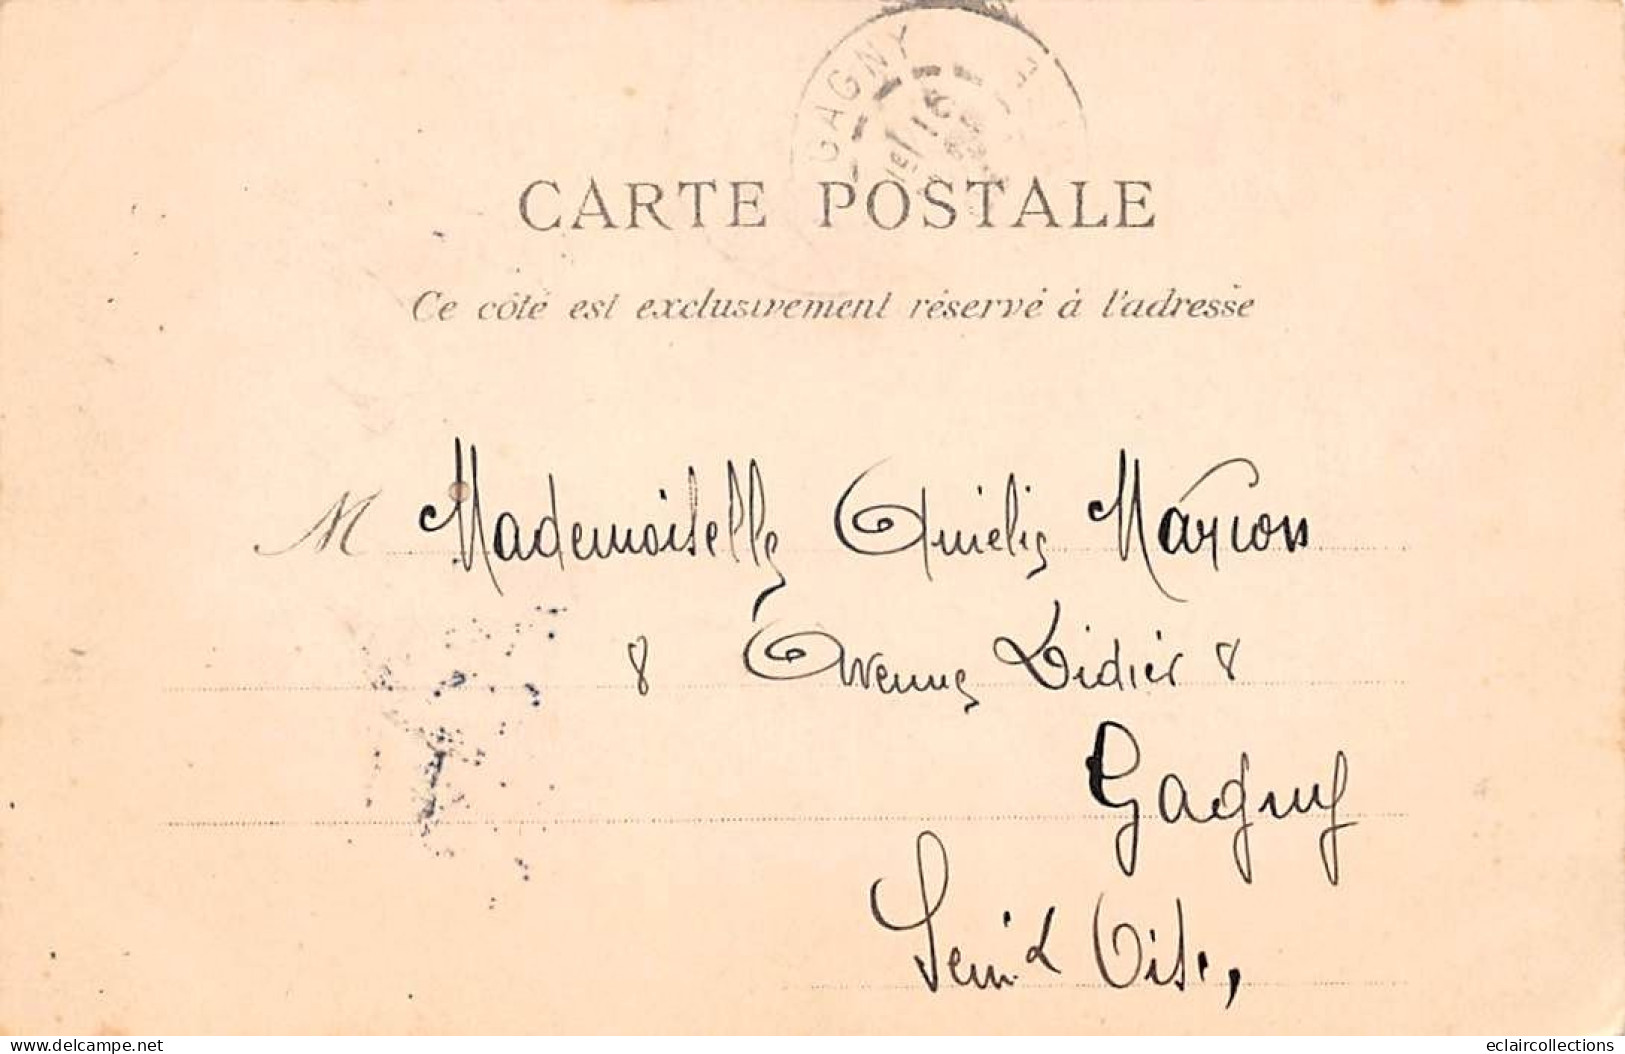 GAGNY
CARTE POSTALE
Ce côté est exclusivement réservé à l'adresse
M Mademoiselle Amélie Marion
8 Avenue Didier 8
Gagny
Seine & Oise,
delcampe.net
eclaircollections